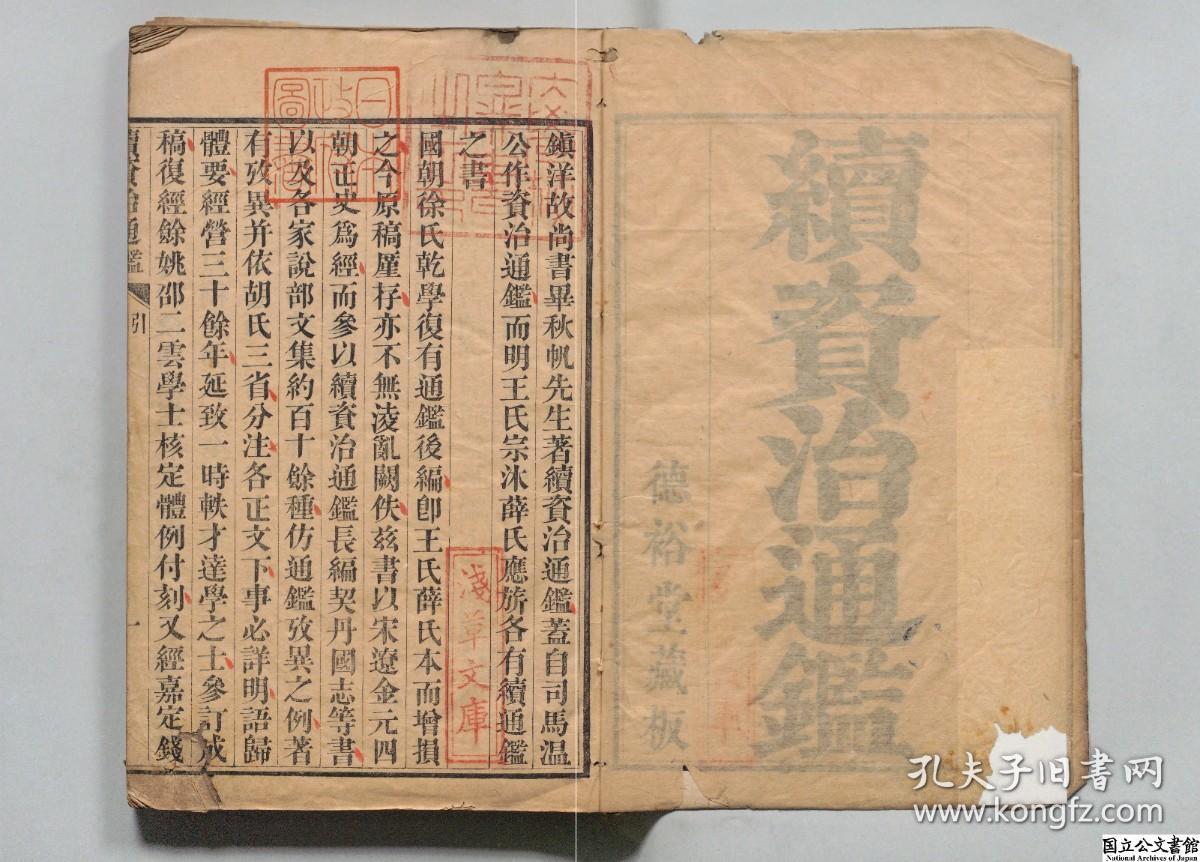 續資治通鑑
德裕堂藏板
鎮洋故尚書畢秋帆先生著續資治通鑑蓋自司馬温
公作資治通鑑而明王氏宗沐薛氏應旂各有續通鑑
之書
國朝徐氏乾學復有通鑑後編卽王氏薛氏本而增損
之今原稿廑存亦不無淩亂闕佚兹書以宋遼金元四
朝正史爲經而參以續資治通鑑長編契丹國志等書
以及各家說部文集約百十餘種仿通鑑攷異之例著
有攷異并依胡氏三省分注各正文下事必詳明語歸
體要經營三十餘年延致一時軼才達學之士參訂成
稿復經餘姚邵二雲學士核定體例付刻又經嘉定錢
續資治通鑑
引
一
淺草文庫
日本政圖
孔夫子旧书网
www.kongfz.com
国立公文書館
National Archives of Japan